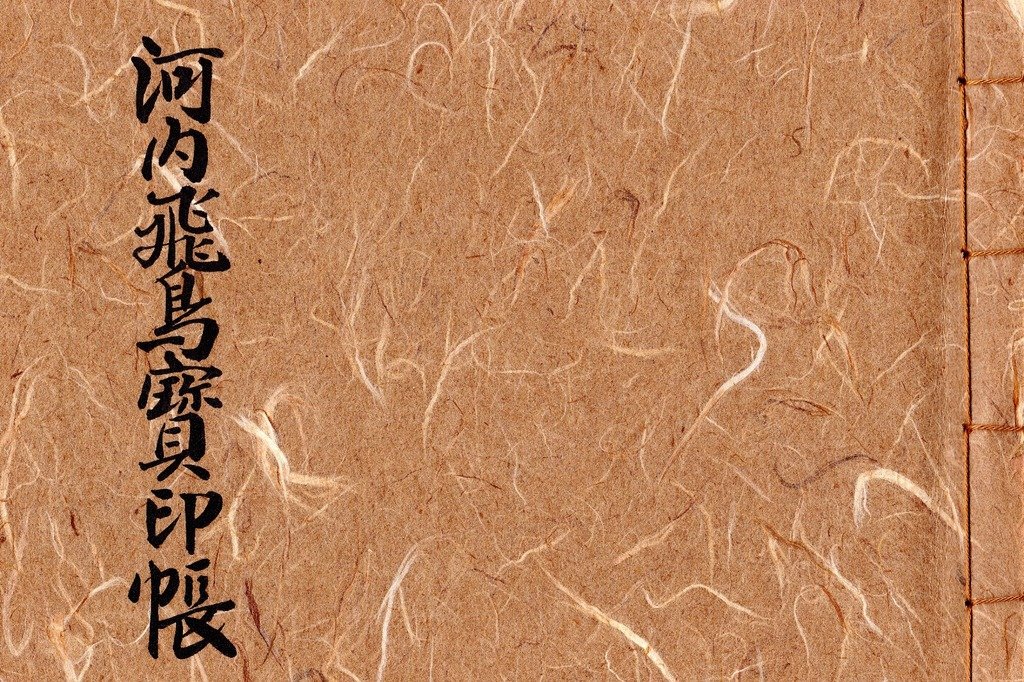 河内飛鳥寶印帳